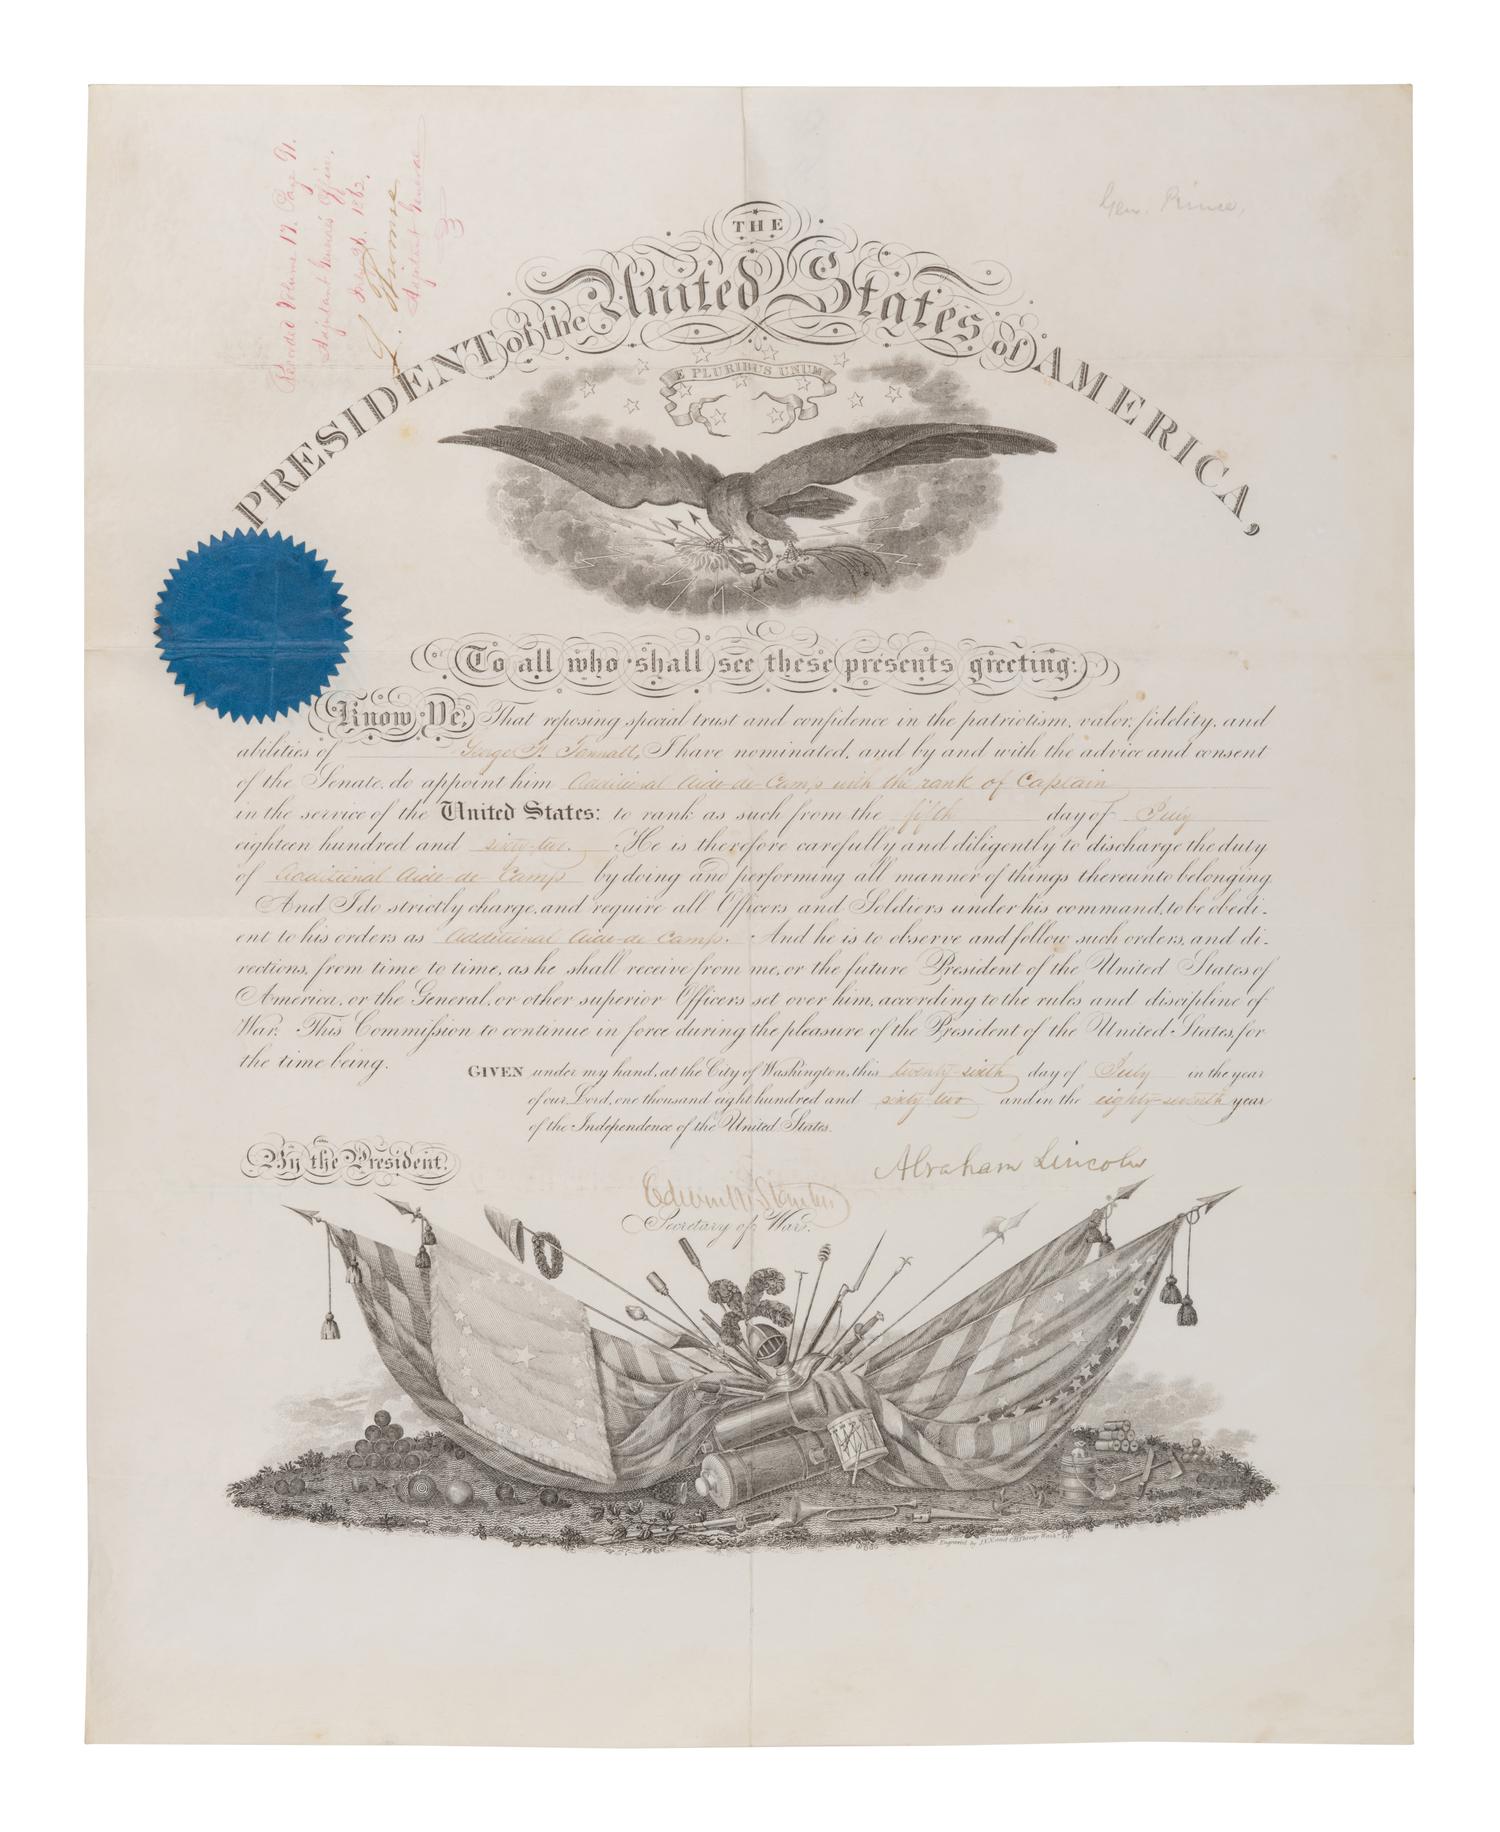 Recorded Volume 17. Page 91.
Adjutant General's Office.
July 26. 1862.
L. Thomas
Adjutant General
Gen. Prince,
THE
PRESIDENT of the United States of AMERICA,
E PLURIBUS UNUM
To all who shall see these presents greeting:
Know Ye, That reposing special trust and confidence in the patriotism, valor, fidelity, and
abilities of George F. I have nominated, and by and with the advice and consent
of the Senate, do appoint him Additional Aide-de-Camp with the rank of Captain
in the service of the United States: to rank as such from the fifth day of July
eighteen hundred and sixty-two. He is therefore carefully and diligently to discharge the duty
of Additional Aide-de-Camp by doing and performing all manner of things thereunto belonging
And I do strictly charge, and require all Officers and Soldiers under his command, to be obedi-
ent to his orders as Additional Aide-de-Camp. And he is to observe and follow such orders, and di-
rections, from time to time, as he shall receive from me, or the future President of the United States of
America, or the General, or other superior Officers set over him, according to the rules and discipline of
War. This Commission to continue in force during the pleasure of the President of the United States, for
the time being.
GIVEN under my hand, at the City of Washington, this twenty-sixth day of July in the year
of our Lord, one thousand eight hundred and sixty-two and in the eighty-seventh year
of the Independence of the United States.
By the President.
Abraham Lincoln
Edwin M Stanton
Secretary of War.
Engraved by